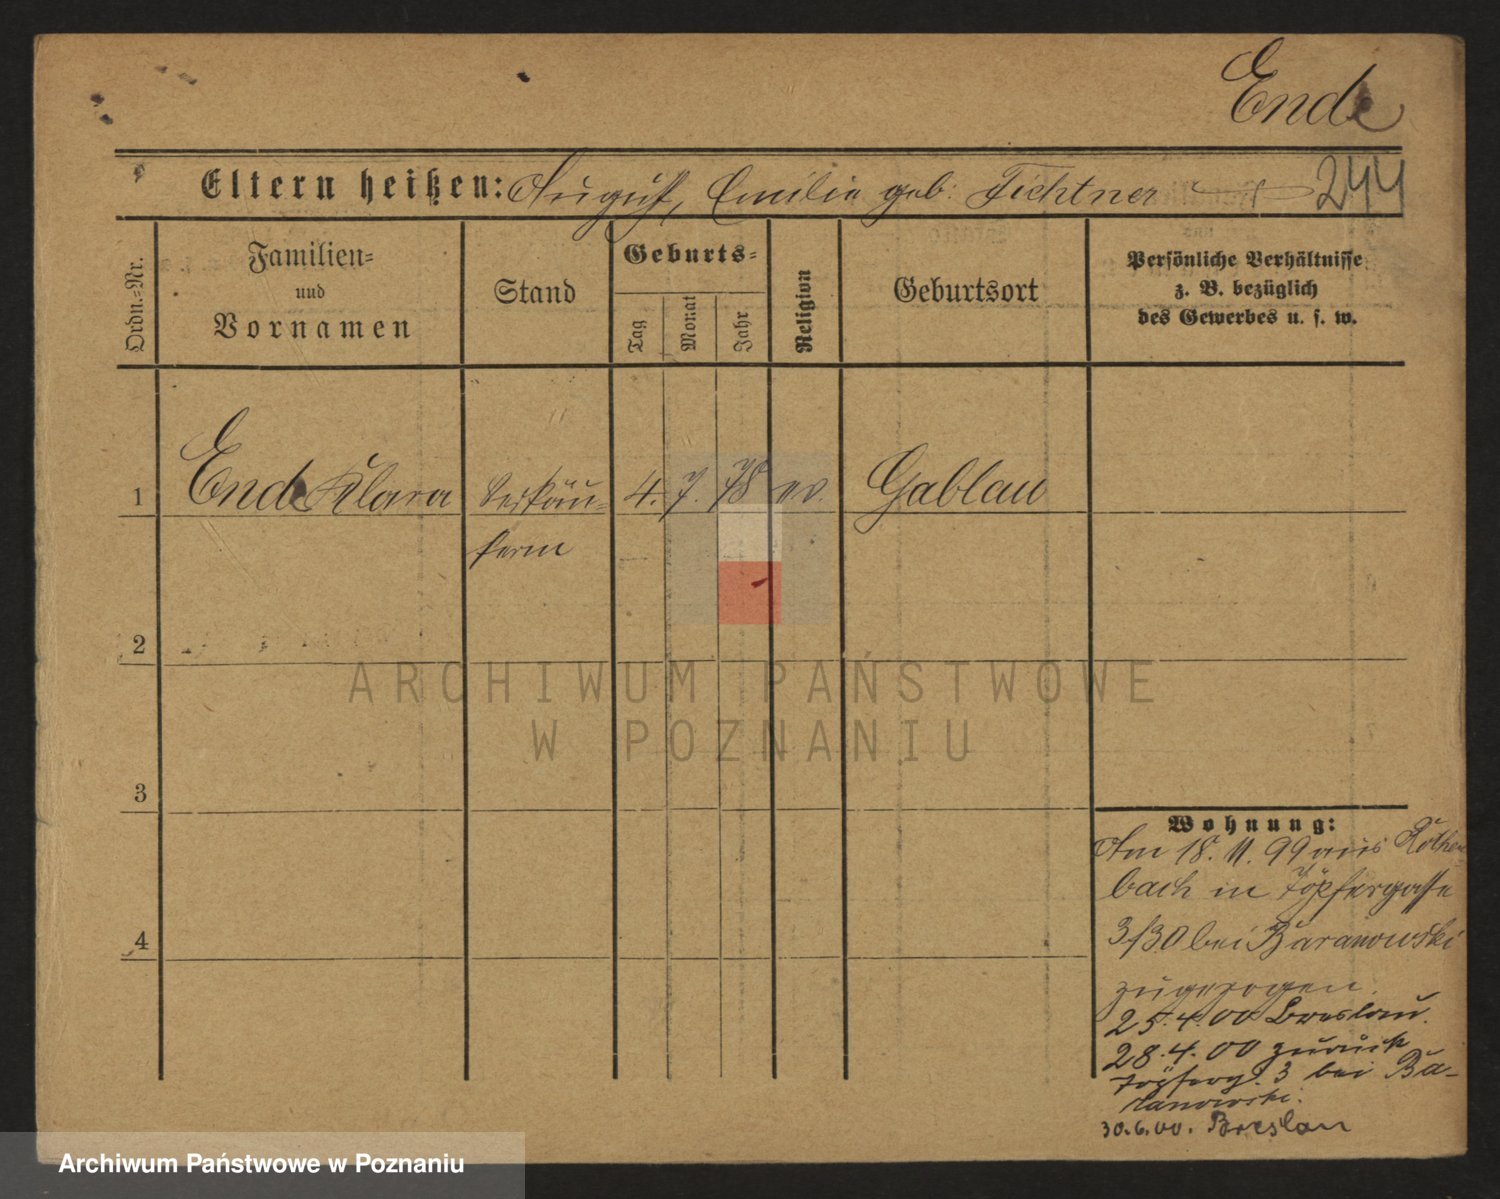 Ende
Eltern heißen: August, Emilie geb: Fichtner 244
Ordn.-Nr.
Familien=
und
Vornamen
Stand
Geburts=
Tag
Monat
Jahr
Religion
Geburtsort
Persönliche Verhältnisse
z. B. bezüglich
des Gewerbes u. s. w.
1 Ende Klara Verkäu= 4. 7. 78 ev. Gablau
ferin
2
3
4
Wohnung:
Am 18. 11. 99 aus Rothen
bach in Töpfergasse
3/30 bei Baranowski
zugezogen.
25.4.00 Breslau.
28.4.00 zurück
Töpferg. 3 bei Ba-
ranowski.
30.6.00. Breslau
ARCHIWUM PAŃSTWOWE
W POZNANIU
Archiwum Państwowe w Poznaniu